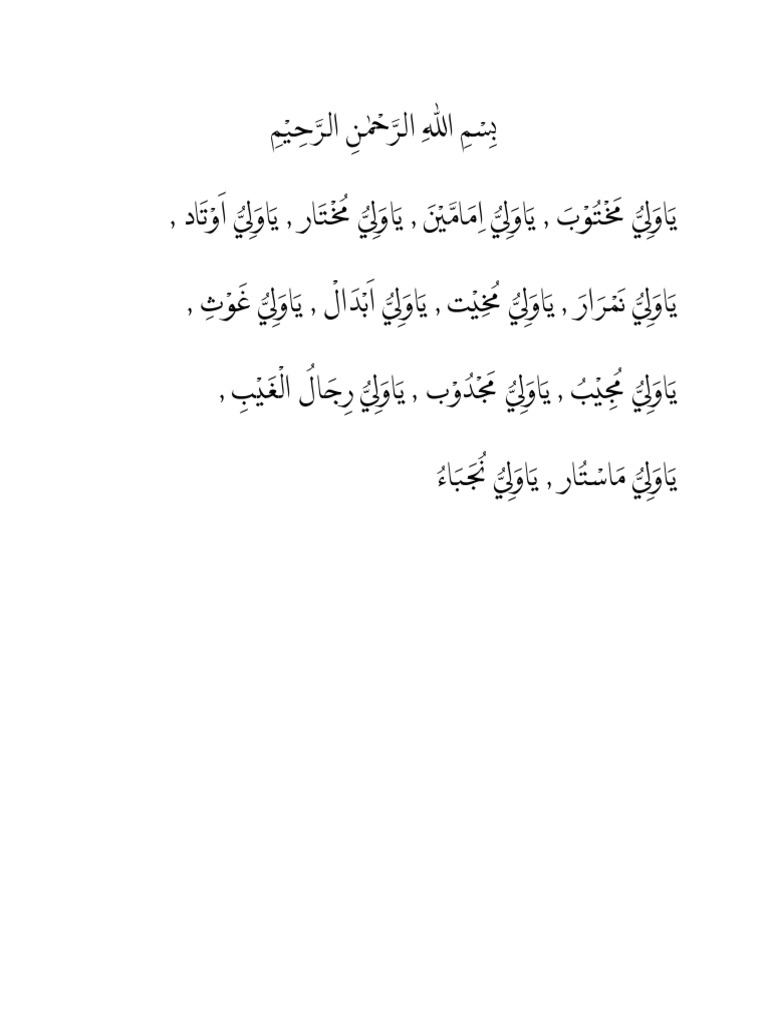 بِسْمِ اللهِ الرَّحْمٰنِ الرَّحِيْمِ
يَاوَلِيُّ مَخْتُوْبَ , يَاوَلِيُّ اِمَامَّيْنَ , يَاوَلِيُّ مُخْتَار , يَاوَلِيُّ اَوْتَاد ,
يَاوَلِيُّ نَمْرَارَ , يَاوَلِيُّ مُخِيْت , يَاوَلِيُّ اَبْدَالْ , يَاوَلِيُّ غَوْثِ ,
يَاوَلِيُّ مُجِيْبُ , يَاوَلِيُّ مَجْدُوْب , يَاوَلِيُّ رِجَالُ الْغَيْبِ ,
يَاوَلِيُّ مَاسْتُار , يَاوَلِيُّ نُجَبَاءُ